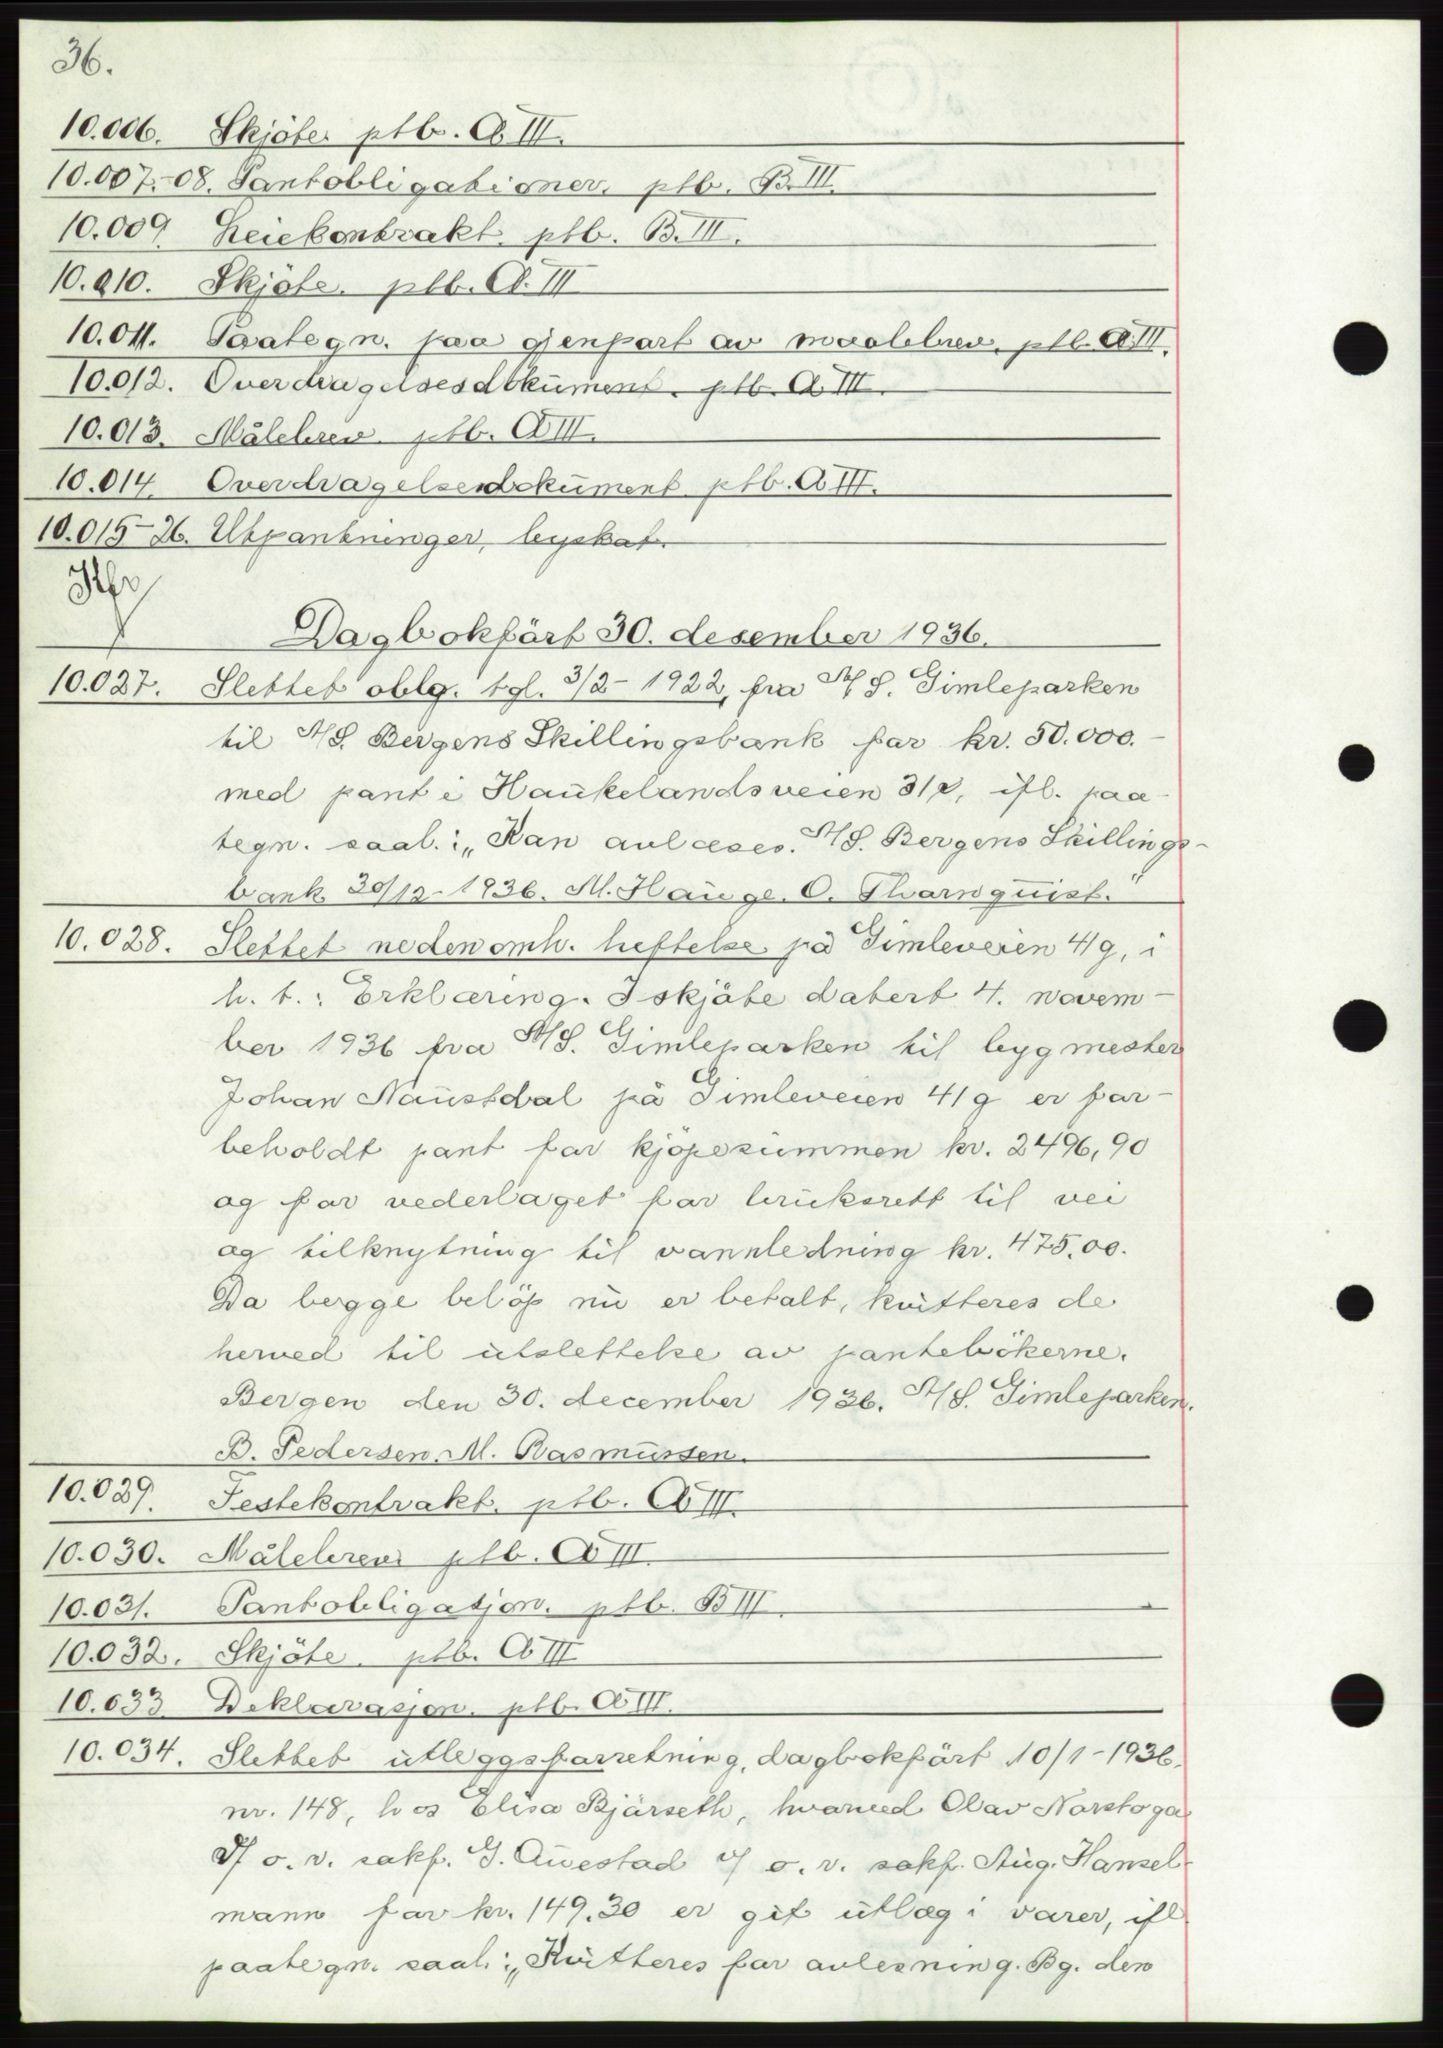 36.
10.006. Skjöte. ptb. A III.
10.007.-08. Pantobligationer. ptb. B. III.
10.009. Leiekontrakt. ptb. B. III.
10.010. Skjöte. ptb. A. III
10.011. Paategn. paa gjenpart av maalebrev. ptb. A III.
10.012. Overdragelsesdokument. ptb. A III.
10.013. Målebrev. ptb. A III.
10.014. Overdragelsesdokument ptb. A III.
10.015-26. Utpantninger, byskat.
Dagbokfört 30. desember 1936.
10.027. Slettet oblg. tgl. 3/2-1922, fra A/S. Gimleparken
til A/S. Bergens Skillingsbank for kr. 50.000.-
med pant i Haukelandsveien 31 , ifl. paa-
tegn. saal.: „Kan avlæses. A/S. Bergens Skillings-
bank 30/12-1936. M. Hauge. O. Thornquist."
10.028. Slettet nedenomh. heftelse på Gimleveien 41g, i
h. t.: Erklæring. I skjöte datert 4. novem-
ber 1936 fra A/S. Gimleparken til bygmester
Johan Naustdal på Gimleveien 41g er for-
beholdt pant for kjöpesummen kr. 2496,90
og for vederlaget for bruksrett til vei
og tilknytning til vannledning kr. 475.00.
Da begge belöp nu er betalt, kvitteres de
herved til utslettelse av pantebökerne.
Bergen den 30. december 1936. A/S. Gimleparken.
B. Pedersen. M. Rasmussen.
10.029. Festekontrakt. ptb. A III.
10.030. Målebrev ptb. A III.
10.031. Pantobligasjon. ptb. B III.
10.032. Skjöte. ptb. A III
10.033 Deklarasjon. ptb. A III.
10.034. Slettet utleggsforretning, dagbokfört 10/1-1936.
nr. 148, hos Elisa Bjørseth, hvorved Olav Norstoga
v/ o. r. sakf. G. Auestad v/ o. r. sakf. Aug. Hansel-
mann for kr. 149.30 er git utlæg i varer, ifl
paategn. saal.: „Kvitteres for avlesning. Bg. den